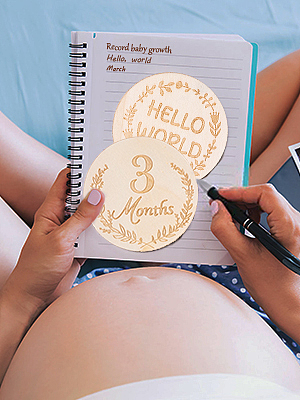 Record baby growth
Hello, world
March
HELLO
WORLD
3
Months